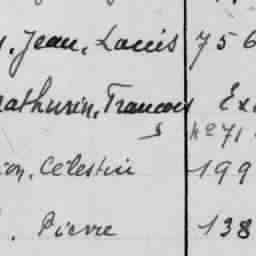 . Jean, Louis 756
athurin, Francois Ex
s no 71
on, Celestin 199
. Pierre 138